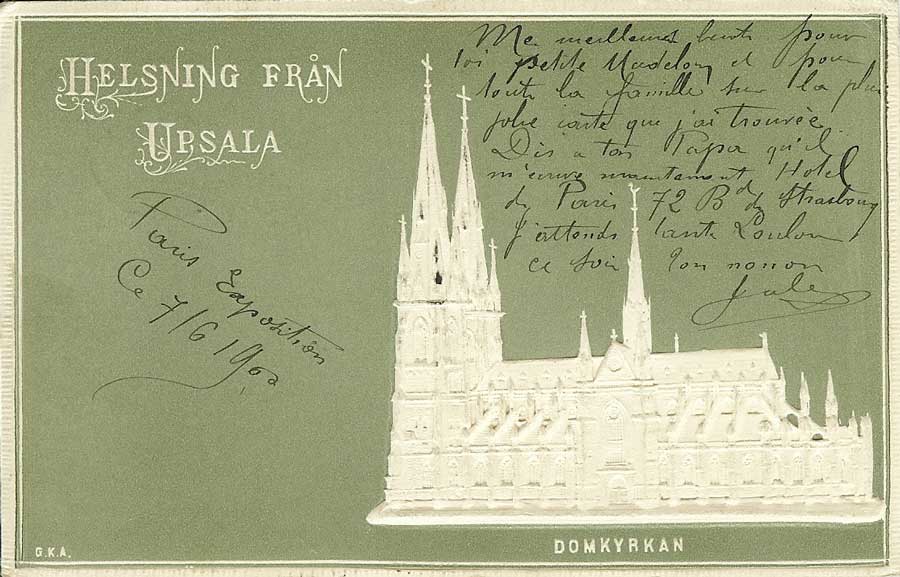 HELSNING FRÅN
UPSALA
Mes meilleures
pour
toi petite Madelon et pour
toute la famille sur la plus
jolie carte que j'ai trouvée
Dis a ton Papa qu'il
m'écrive maintenant Hotel
de Paris 72 Bd de Strasbourg
J'attends tante Loulou
ce soir Ton nonon
Jules
Paris Exposition
Ce 7/6 1900
G.K.A.
DOMKYRKAN